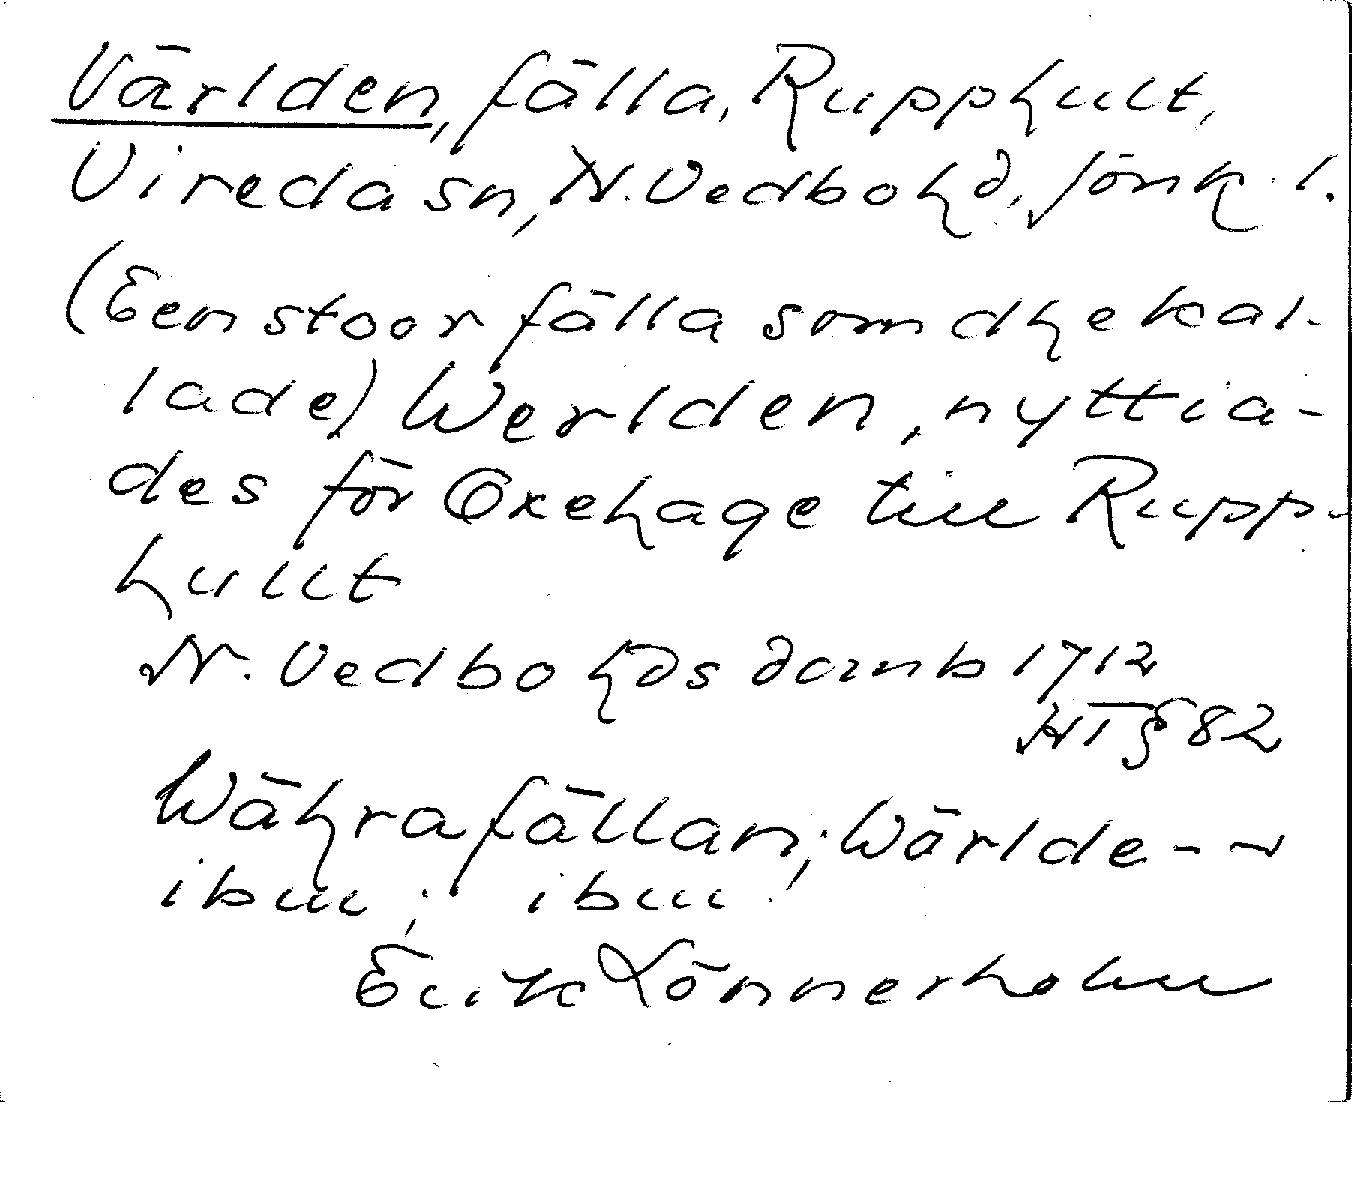 Världen, fälla, Rupphult,
Vireda sn, N. Vedbo hd, Jönk. l.
(Een stoor fälla som dhe kal-
lade) Werlden, nyttia-
des för Oxehage till Rupp-
hullt
N. Vedbo hds domb 1712
HT § 82
Währafällan; Wärlde--
ibm; ibm
Erik Lönnerholm